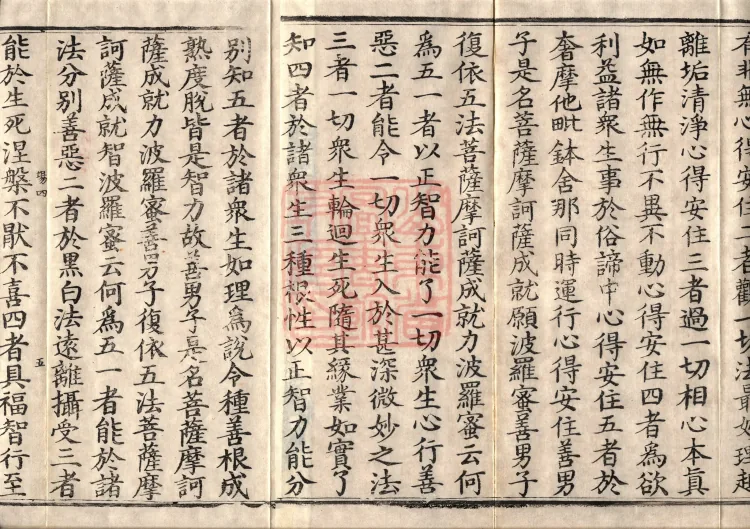 有非無心得安住二者觀一切法最妙理趣
離垢清淨心得安住三者過一切相心本真
如無作無行不異不動心得安住四者為欲
利益諸衆生事於俗諦中心得安住五者於
奢摩他毗鉢舍那同時運行心得安住善男
子是名菩薩摩訶薩成就願波羅蜜善男子
復依五法菩薩摩訶薩成就力波羅蜜云何
為五一者以正智力能了一切衆生心行善
惡二者能令一切衆生入於甚深微妙之法
三者一切衆生輪迴生死隨其緣業如實了
知四者於諸衆生三種根性以正智力能分
別知五者於諸衆生如理為說令種善根成
熟度脫皆是智力故善男子是名菩薩摩訶
薩成就力波羅蜜善男子復依五法菩薩摩
訶薩成就智波羅蜜云何為五一者能於諸
法分別善惡二者於黑白法遠離攝受三者
能於生死涅槃不厭不喜四者具福智行至
場四
五